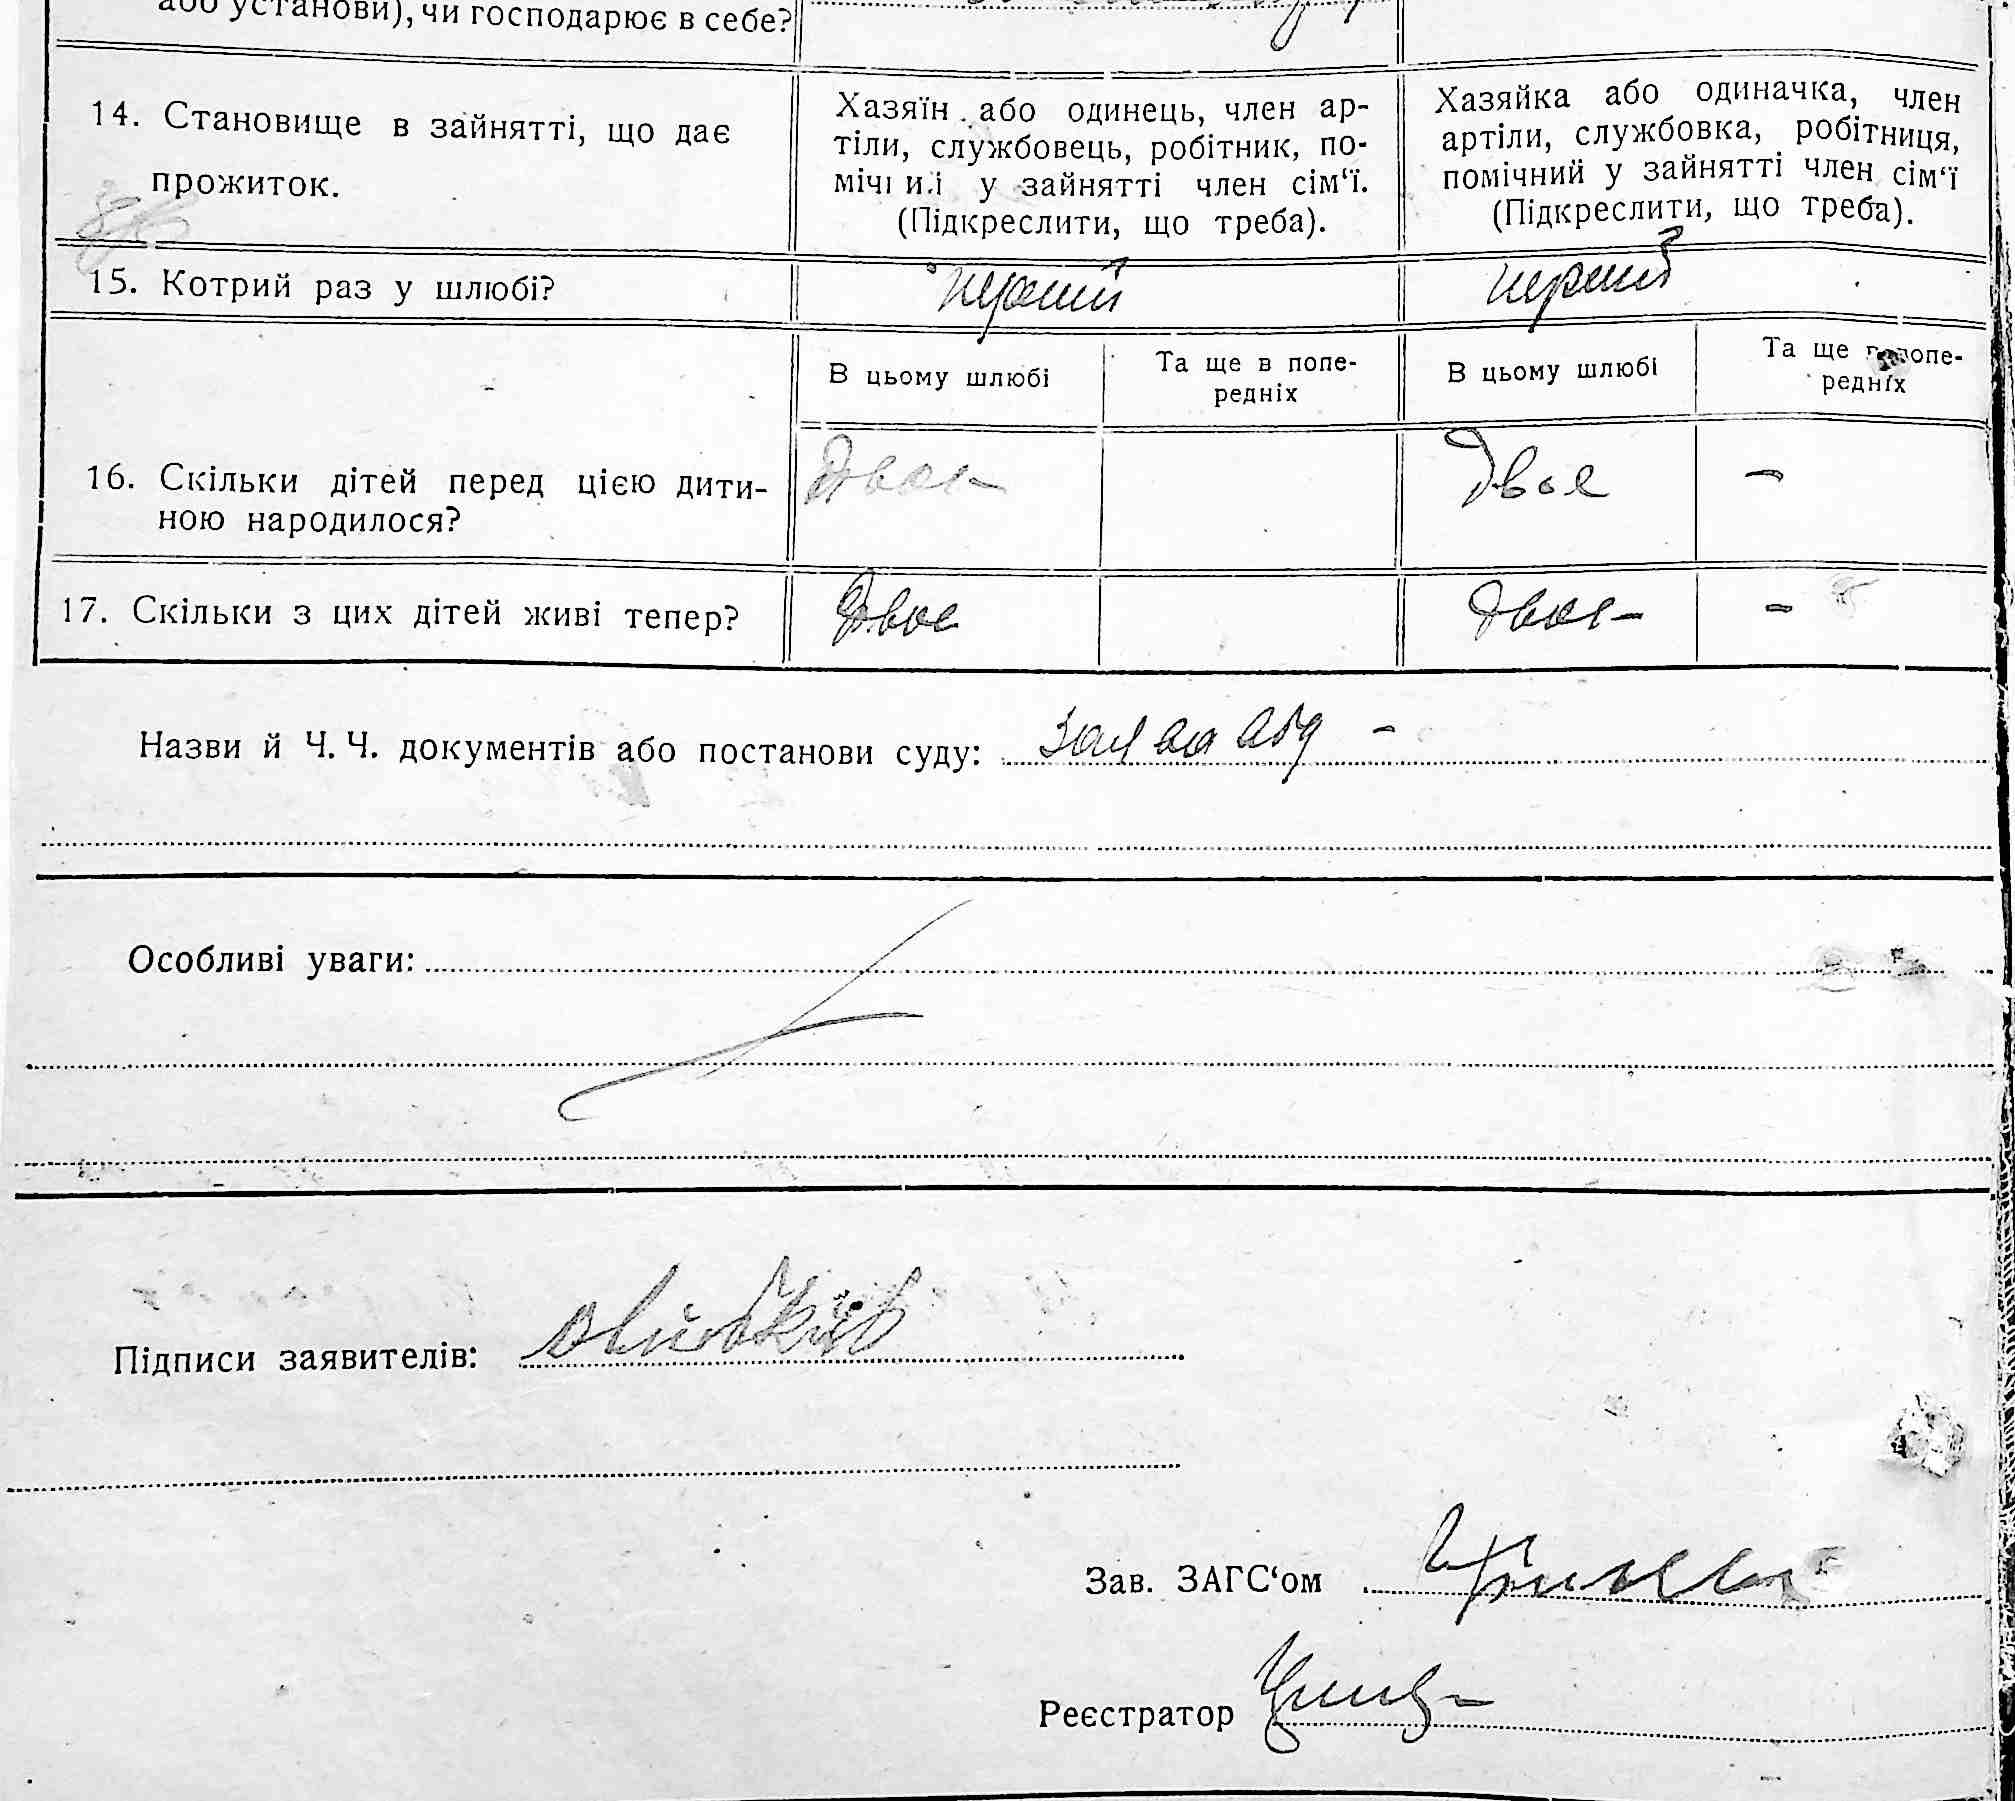 або установи), чи господарює в себе?
14. Становище в зайнятті, що дає
прожиток.
Хазяїн або одинець, член ар-
тіли, службовець, робітник, по-
мічний у зайнятті член сім‘ї.
(Підкреслити, що треба).
Хазяйка або одиначка, член
артіли, службовка, робітниця,
помічний у зайнятті член сім‘ї
(Підкреслити, що треба).
15. Котрий раз у шлюбі?
перший
перший
В цьому шлюбі
Та ще в попе-
редніх
В цьому шлюбі
Та ще в попе-
редніх
16. Скільки дітей перед цією дити-
ною народилося?
Двое
Двое
–
17. Скільки з цих дітей живі тепер?
Двое
Двое
–
Назви й Ч. Ч. документів або постанови суду:
Особливі уваги:
Підписи заявителів:
Зав. ЗАГС‘ом
Реєстратор